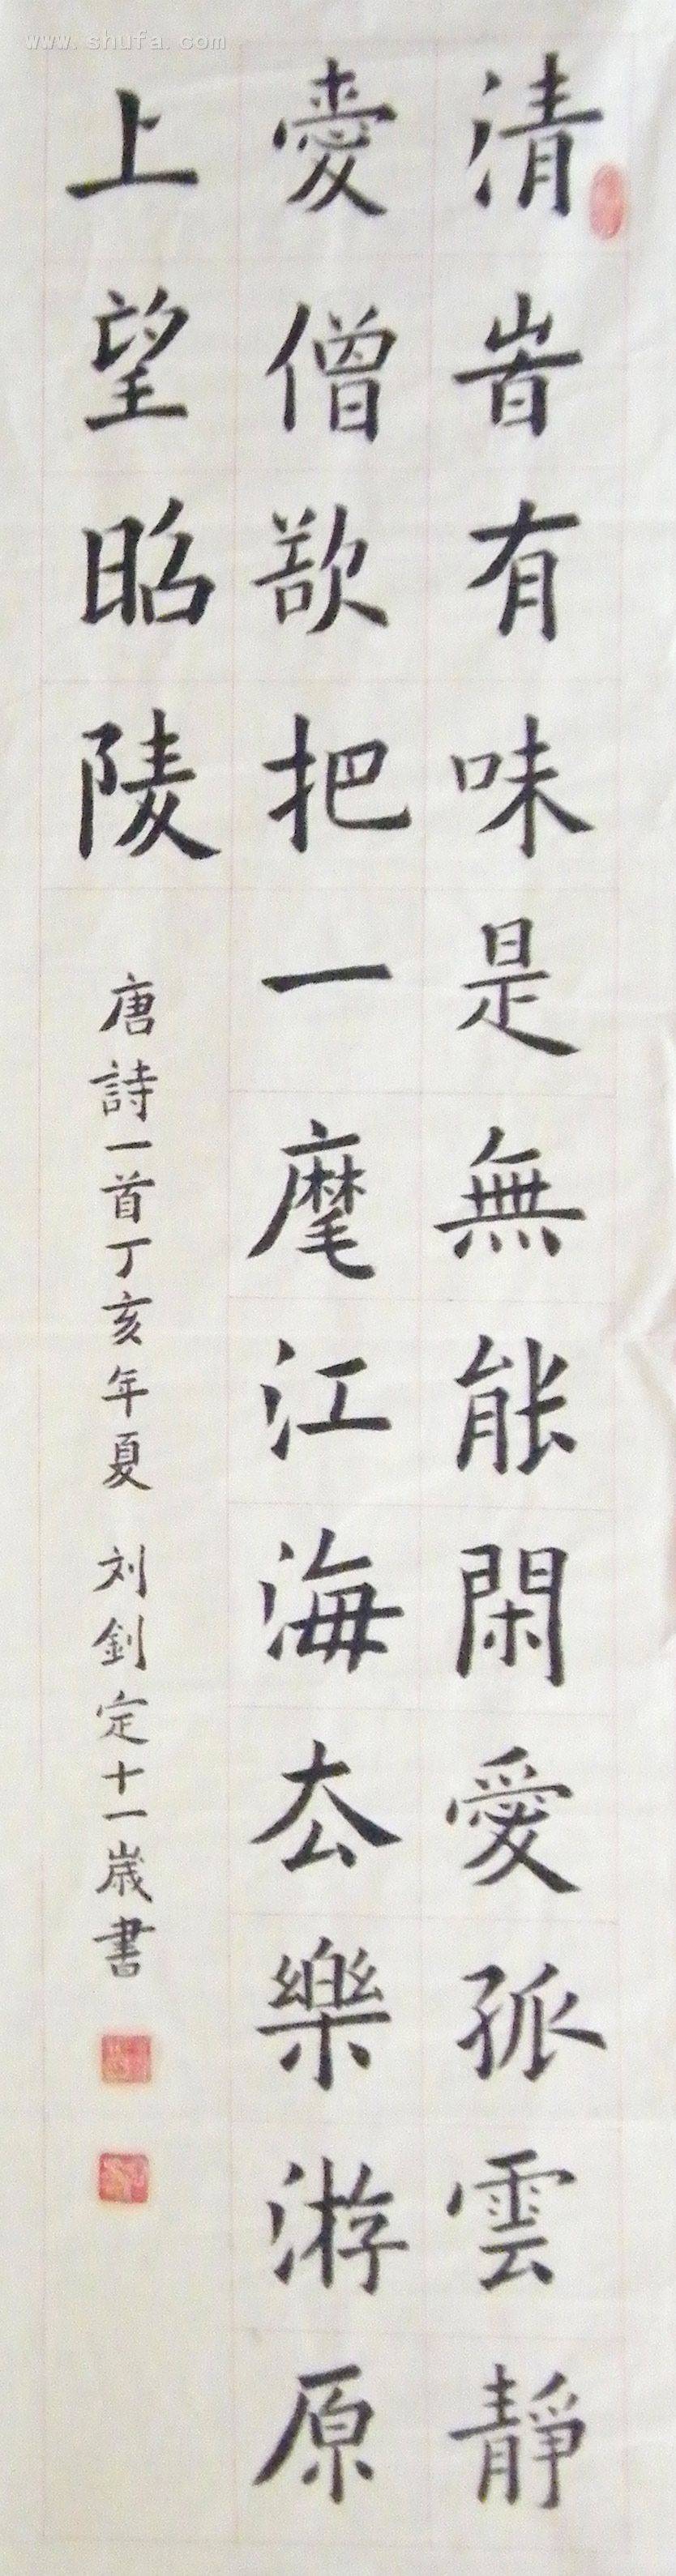 清旹有味是無能閑愛孤雲靜
愛僧欲把一麾江海去樂游原
上望昭陵
唐詩一首丁亥年夏 刘釗定十一歲書
www.shufa.com